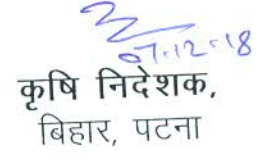 07.12.18
कृषि निदेशक,
बिहार, पटना